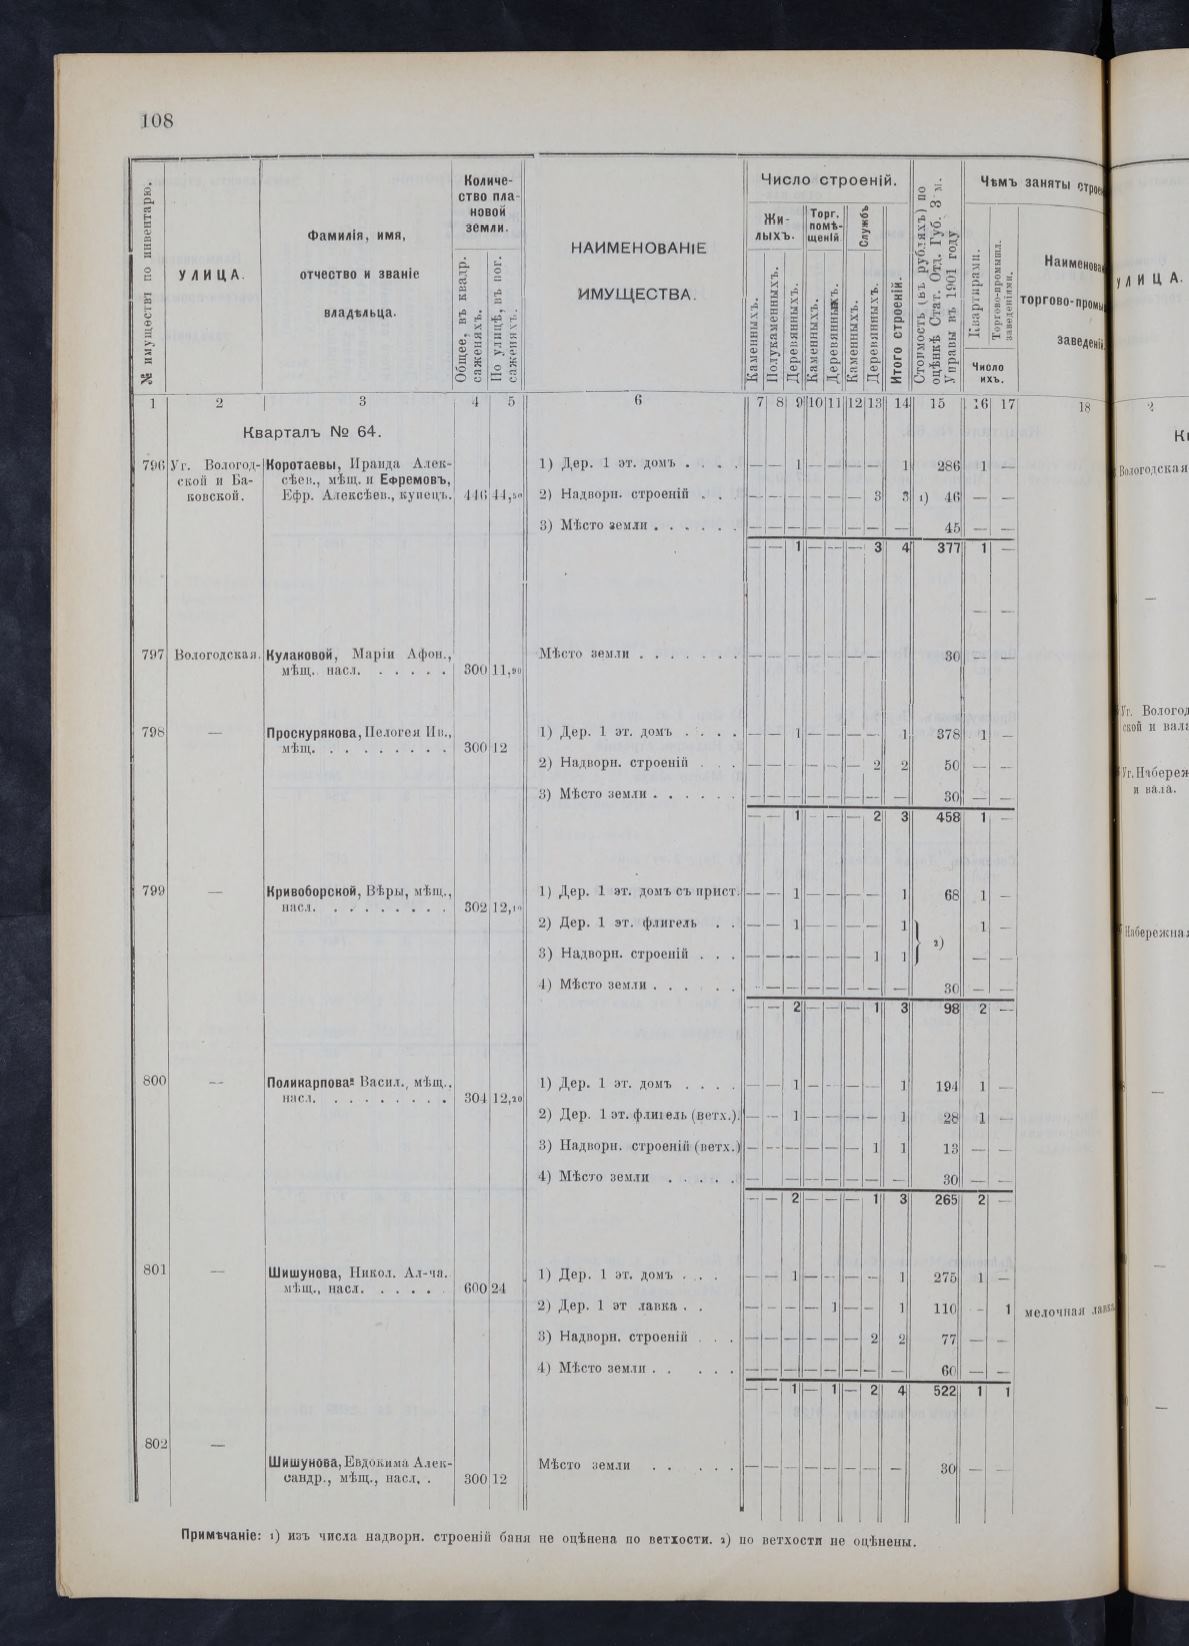 108
№ имуществъ по инвентарю.
УЛИЦА.
Фамилія, имя,
отчество и званіе
владѣльца.
Количе-
ство пла-
новой
земли.
Общее, въ квадр.
саженяхъ.
По улицѣ, въ пог.
саженяхъ.
НАИМЕНОВАНІЕ
ИМУЩЕСТВА.
Число строеній.
Жи-
лыхъ.
Торг.
помѣ-
щеній
Службъ
Каменныхъ.
Полукаменныхъ.
Деревянныхъ.
Каменныхъ.
Деревянныхъ.
Каменныхъ.
Деревянныхъ.
Итого строеній.
Стоимость (въ рубляхъ) по
оцѣнкѣ Стат. Отд. Губ. Зем.
Управы въ 1901 году
Чѣмъ заняты строе
Квартирами.
Торгово-промышл.
заведеніями.
Число
ихъ.
Наименован
торгово-промы
заведеній
1 2 3 4 5 6 7 8 9 10 11 12 13 14 15 16 17 18
Кварталъ № 64.
796 Уг. Вологод- Коротаевы, Ираида Алек- 1) Дер. 1 эт. домъ . . . . — — 1 — — — — 1 286 1 —
ской и Ба- сѣев., мѣщ. и Ефремовъ,
ковской. Ефр. Алексѣев., купецъ. 446 44,50 2) Надворн. строеній . . . — — — — — — 3 3 1) 46 — —
3) Мѣсто земли . . . . . . — — — — — — — — 45 — —
— — 1 — — — 3 4 377 1 —
— —
797 Вологодская. Кулаковой, Маріи Афон., Мѣсто земли . . . . . . . — — — — — — — 30 — —
мѣщ. насл. . . . . . 300 11,90
798 — Проскурякова, Пелогея Ив., 1) Дер. 1 эт. домъ . . . . — — 1 — — — — 1 378 1 —
мѣщ. . . . . . . . . 300 12
2) Надворн. строеній . . . — — — — — — 2 2 50 — —
3) Мѣсто земли . . . . . . — — — — — — — — 30 — —
— — 1 — — — 2 3 458 1 —
799 — Кривоборской, Вѣры, мѣщ., 1) Дер. 1 эт. домъ съ прист. — — 1 — — — — 1 68 1 —
насл. . . . . . . . . 302 12,10
2) Дер. 1 эт. флигель . . — — 1 — — — — 1 1 —
2)
3) Надворн. строеній . . . — — — — — — 1 1 — —
4) Мѣсто земли . . . . . . — — — — — — — — 30 — —
— — 2 — — — 1 3 98 2 —
800 — Поликарпова Васил., мѣщ., 1) Дер. 1 эт. домъ . . . . — — 1 — — — — 1 194 1 —
насл. . . . . . . . . 304 12,20
2) Дер. 1 эт. флигель (ветх.). — — 1 — — — — 1 28 1 —
3) Надворн. строеній (ветх.) — — — — — — 1 1 13 — —
4) Мѣсто земли . . . . . — — — — — — — — 30 — —
— — 2 — — — 1 3 265 2 —
801 — Шишунова, Никол. Ал-ча. 1) Дер. 1 эт. домъ . . . — — 1 — — — — 1 275 1 —
мѣщ., насл. . . . . . 600 24
2) Дер. 1 эт лавка . . — — — — 1 — — 1 110 — 1 мелочная лавка
3) Надворн. строеній . . . — — — — — — 2 2 77 — —
4) Мѣсто земли . . . . . — — — — — — — — 60 — —
— — 1 — 1 — 2 4 522 1 1
802 —
Шишунова, Евдокима Алек- Мѣсто земли . . . . . — — — — — — — — 30 — —
сандр., мѣщ., насл. . 300 12
Примѣчаніе: 1) изъ числа надворн. строеній баня не оцѣнена по ветхости. 2) по ветхости не оцѣнены.
УЛИЦА.
2
Вологодская
—
Уг. Вологод
ской и вала
Уг. Набереж
и вала.
Набережная
—
—